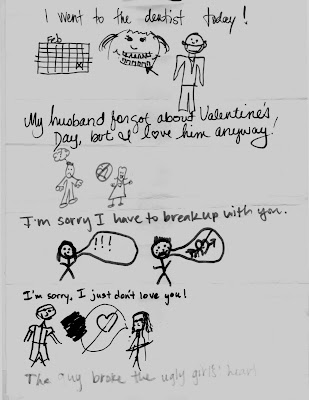 I went to the dentist today!
Feb
My husband forgot about Valentine's
Day, but I love him anyway!
I'm sorry I have to break up with you.
!!!
I'm sorry. I just don't love you!
The guy broke the ugly girls' heart